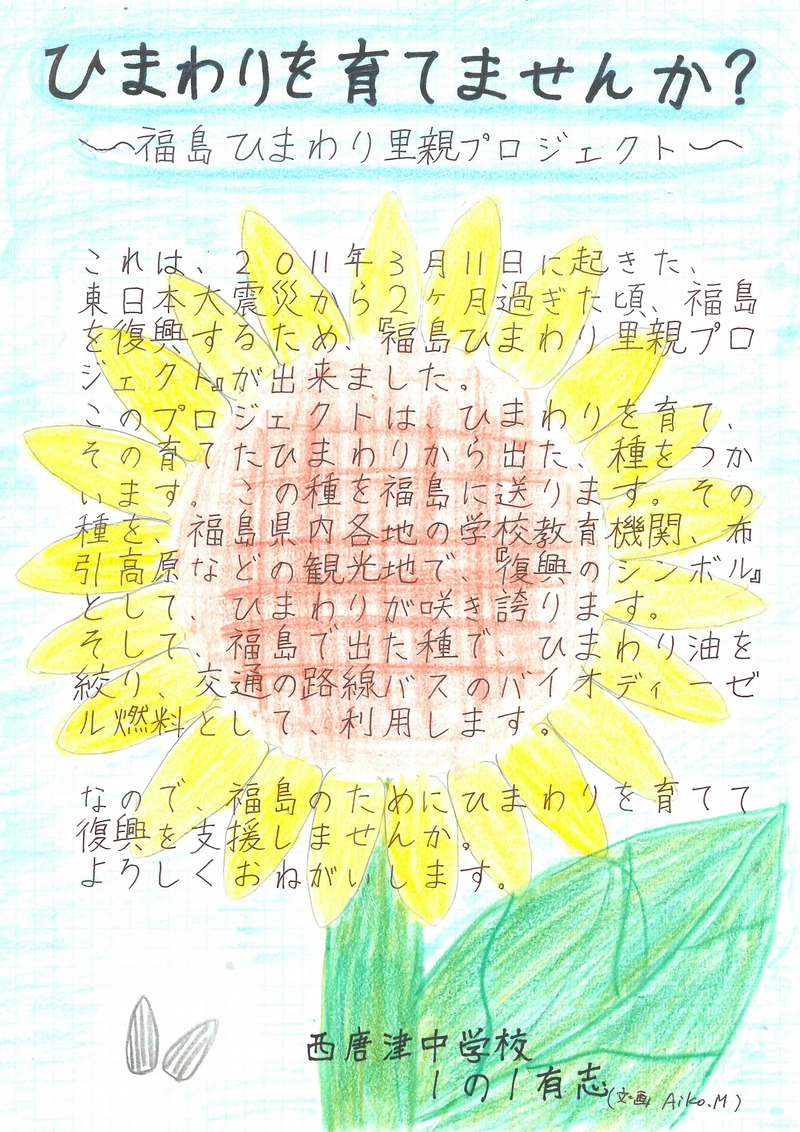 ひまわりを育てませんか?
〜福島ひまわり里親プロジェクト〜
これは、2011年3月11日に起きた、
東日本大震災から2ヶ月過ぎた頃、福島
を復興するため、『福島ひまわり里親プロ
ジェクト』が出来ました。
このプロジェクトは、ひまわりを育て、
その育てたひまわりから出た、種をつか
います。この種を福島に送ります。その
種を、福島県内各地の学校教育機関、布
引高原などの観光地で、『復興のシンボル』
として、ひまわりが咲き誇ります。
そして、福島で出た種で、ひまわり油を
絞り、交通の路線バスのバイオディーゼ
ル燃料として、利用します。
なので、福島のためにひまわりを育てて
復興を支援しませんか。
よろしくおねがいします。
西唐津中学校
1の1有志(文・画 Aiko.M)